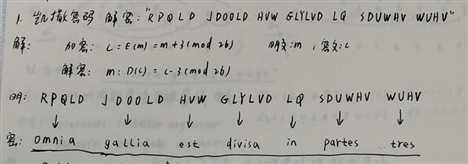 1. 凯撒密码 解密："RPQLD JDOOLD HVW GLYLVD LQ SDUWHV WUHV"
解： 加密：C=E(m)=m+3(mod 26) 明文：m，密文：c
解密：m：D(c)=c-3(mod 26)
明： RPQLD JDOOLD HVW GLYLVD LQ SDUWHV WUHV
↓ ↓ ↓ ↓ ↓ ↓ ↓
密： omnia gallia est divisa in partes tres